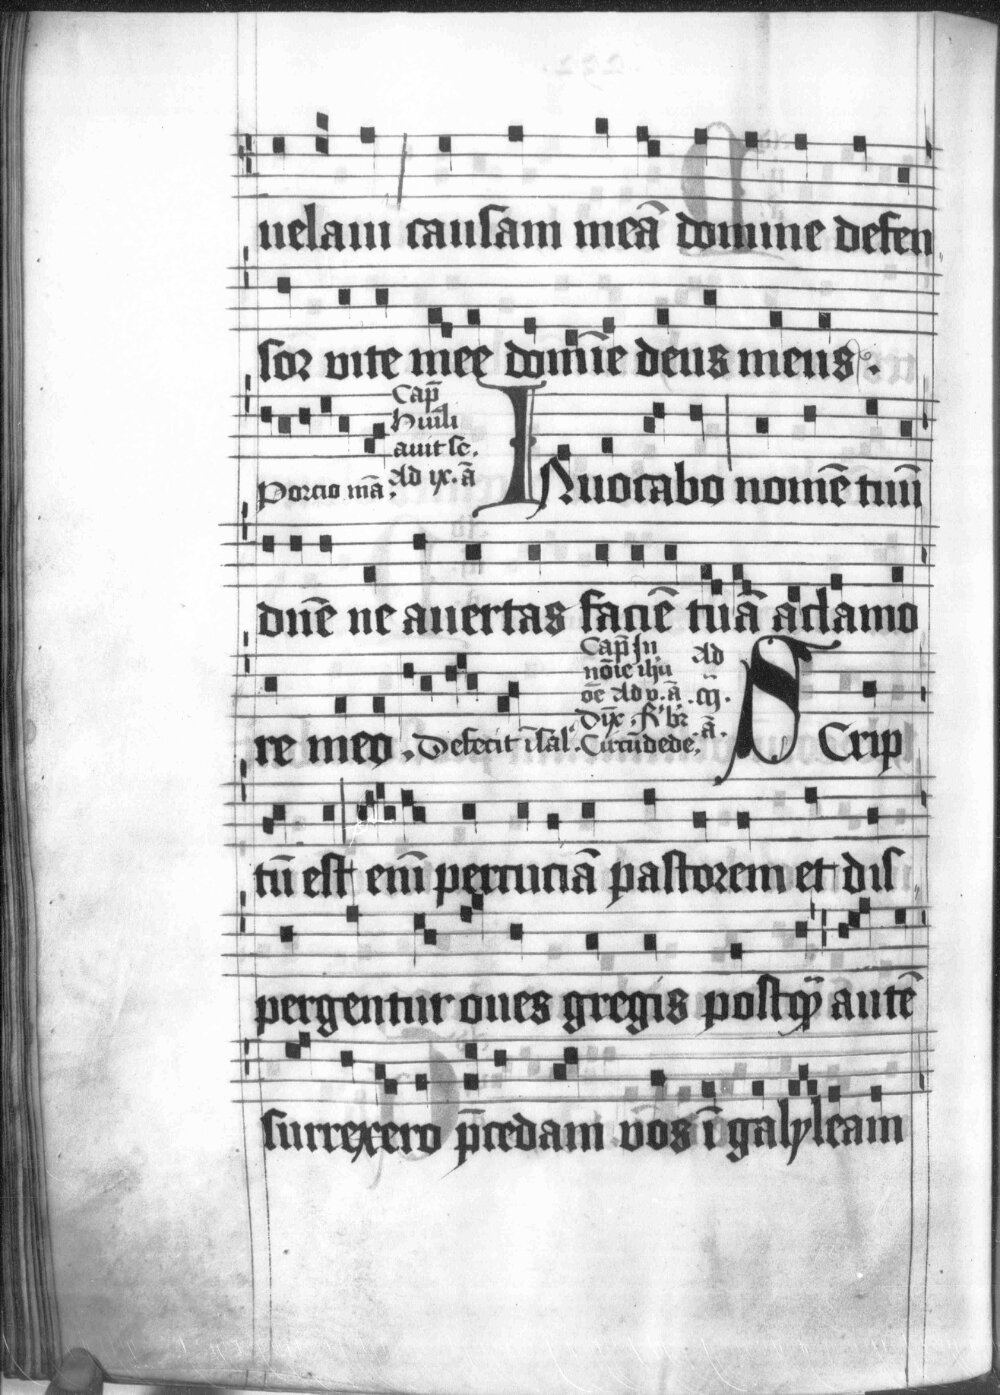 uelam causam meā domine defen
sor uite mee domīe deus meus.
Cap̄
Humili
auit se.
Porcio mā. Ad ix. ā INuocabo nomē tuū
dn̄e ne auertas faciē tuā a clamo
re meo. Defecit ī sal.
Cap̄ Jn
nōīe ihū
ōē Ad v. ā
Circūdede.
Ad
cō.
ā.
SCrip
tū est enī percuciā pastorem et dis
pergentur oues gregis postq̄ autē
surrexero p̄cedam uos ī galyleam